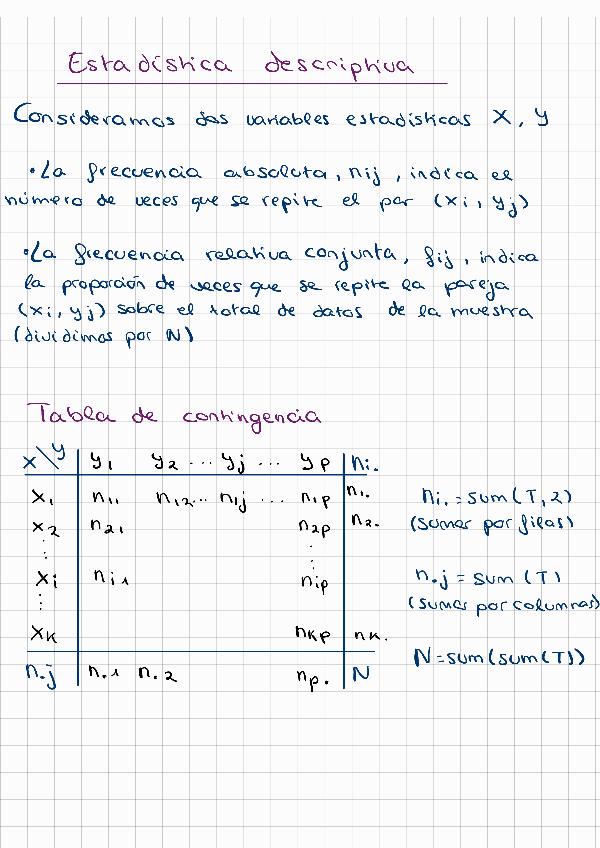 Estadística descriptiva
Consideramos dos variables estadísticas X, Y
• La frecuencia absoluta, nij, indica el
número de veces que se repite el par (xi, yj)
• La frecuencia relativa conjunta, fij, indica
la proporción de veces que se repite la pareja
(xi, yj) sobre el total de datos de la muestra
(dividimos por N)
Tabla de contingencia
x\y y1 y2 ... yj ... yp ni.
x1 n11 n12... n1j ... n1p n1.
x2 n21 n2p n2.
⋮ ⋮
xi ni1 nip
⋮
xk nkp nk.
n.j n.1 n.2 np. N
ni. = sum(T,2)
(sumar por filas)
n.j = sum(T)
(sumar por columnas)
N=sum(sum(T))